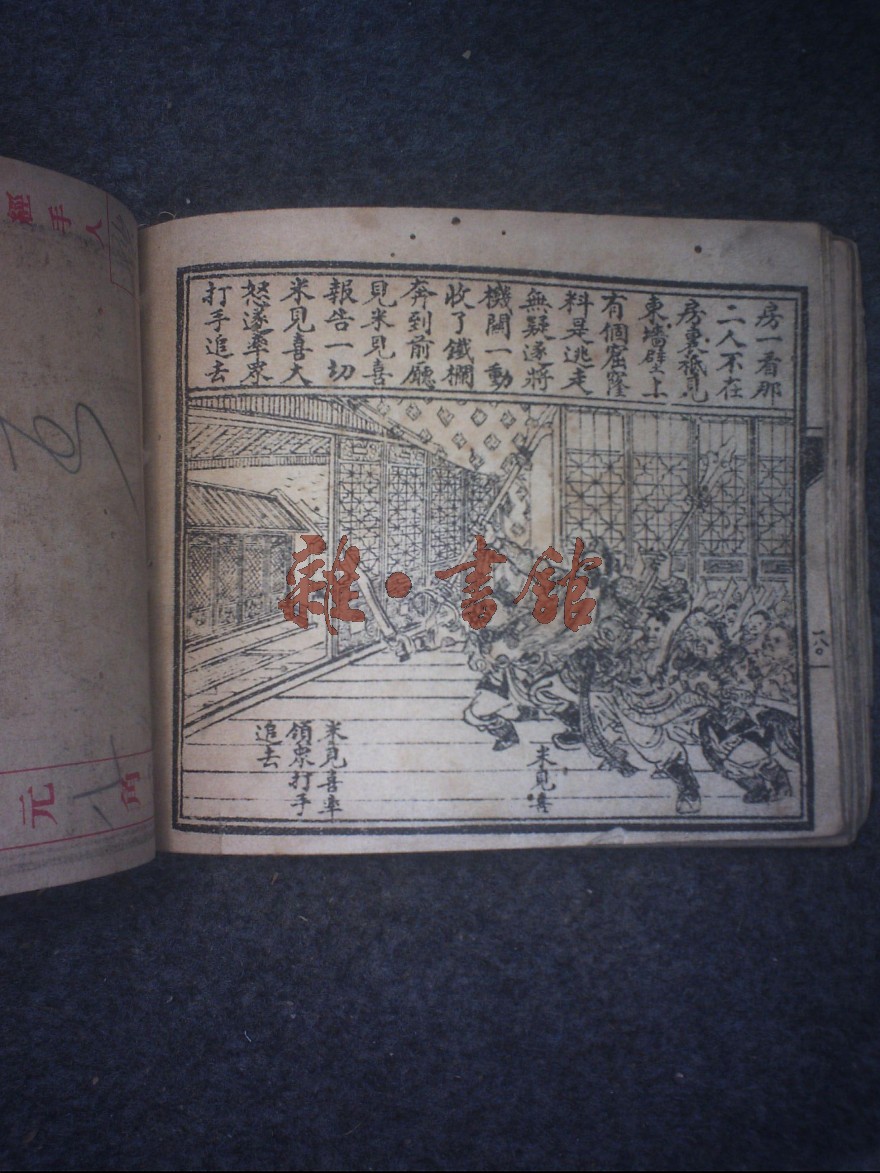 房一看那
二人不在
房裏祗見
東墻壁上
有個窟窿
料是逃走
無疑遂將
機關一動
收了鐵欄
奔到前廳
見米見喜
報告一切
米見喜大
怒遂率眾
打手追去
米見喜
米見喜率
領眾打手
追去
一八〇
雜·書館
經手人
元
角